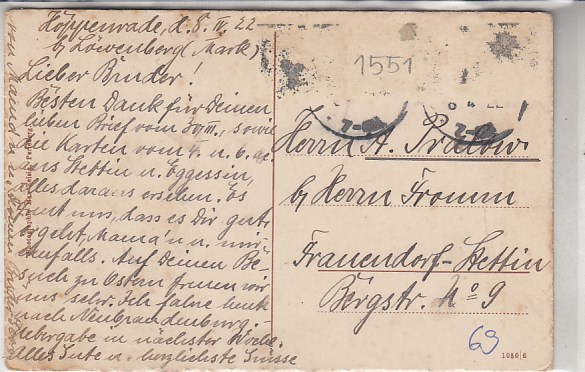 Hoppenrade, d. 8. IV. 22
b/ Löwenberg (Mark)
Lieber Bruder!
Besten Dank für Deinen
lieben Brief vom, sowie
die Karten vom 4. u. 6. aus
Stettin u. Eggessin,
alles daraus ersehen. Es
freut uns, dass es Dir gut
geht, Mama u. mir
ebenfalls. Auf Deinen Be-
such zu Ostern freuen wir
uns sehr. Ich fahre heute
nach Neubrandenburg.
Uebergabe in nächster Woche.
Alles Gute u. herzlichste Grüsse
von Mama u.
1551
7-8
Herrn A. Prutow!
b/ Herrn Fromm
Frauendorf-Stettin
Bergstr. No 9
69
1080/6